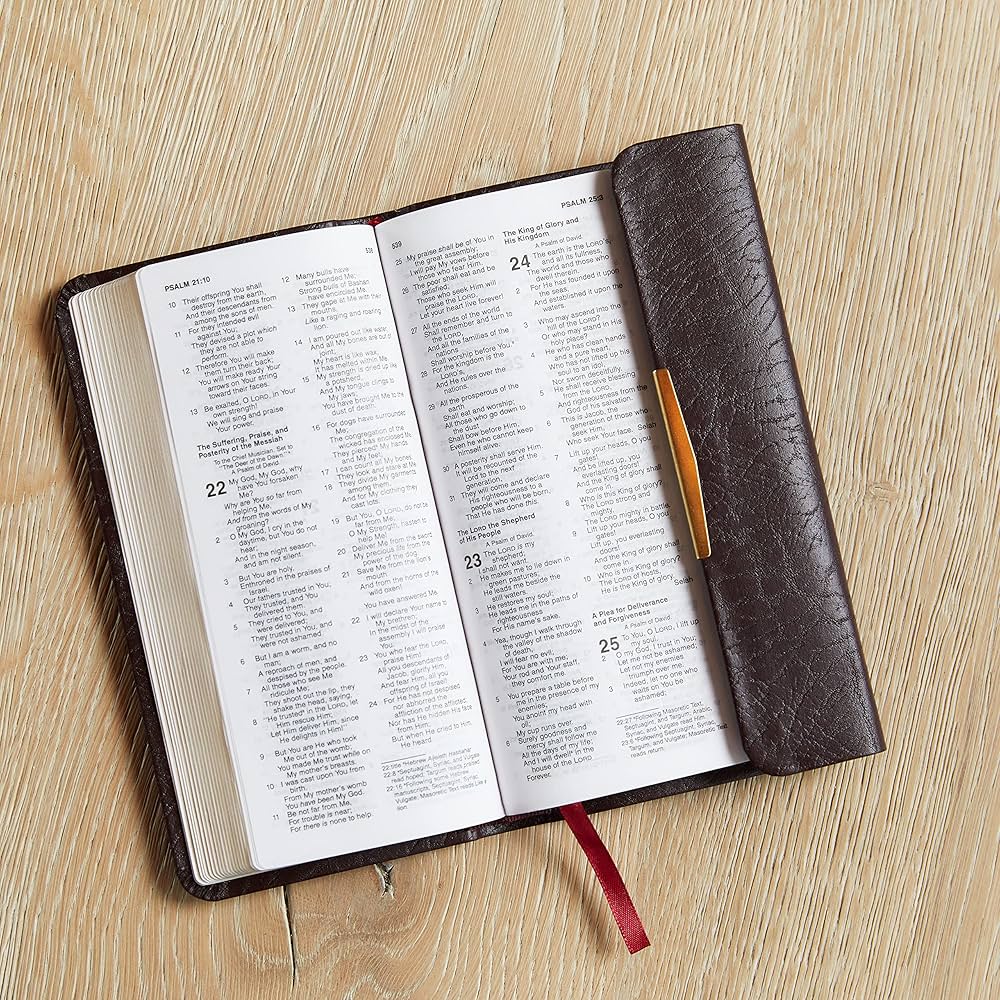 PSALM 21:10
538
10 Their offspring You shall
destroy from the earth,
And their descendants from
among the sons of men.
11 For they intended evil
against You;
They devised a plot which
they are not able to
perform.
12 Therefore You will make
them turn their back;
You will make ready Your
arrows on Your string
toward their faces.
13 Be exalted, O LORD, in Your
own strength!
We will sing and praise
Your power.
The Suffering, Praise, and
Posterity of the Messiah
To the Chief Musician. Set to
"The Deer of the Dawn."*
A Psalm of David.
22 My God, My God, why
have You forsaken
Me?
Why are You so far from
helping Me,
And from the words of My
groaning?
2 O My God, I cry in the
daytime, but You do not
hear;
And in the night season,
and am not silent.
3 But You are holy,
Enthroned in the praises of
Israel.
4 Our fathers trusted in You;
They trusted, and You
delivered them.
5 They cried to You, and
were delivered;
They trusted in You, and
were not ashamed.
6 But I am a worm, and no
man;
A reproach of men, and
despised by the people.
7 All those who see Me
ridicule Me;
They shoot out the lip, they
shake the head, saying,
8 "He trusted* in the LORD, let
Him rescue Him;
Let Him deliver Him, since
He delights in Him!"
9 But You are He who took
Me out of the womb;
You made Me trust while on
My mother's breasts.
10 I was cast upon You from
birth.
From My mother's womb
You have been My God.
11 Be not far from Me,
For trouble is near;
For there is none to help.
12 Many bulls have
surrounded Me;
Strong bulls of Bashan
have encircled Me.
13 They gape at Me with their
mouths,
Like a raging and roaring
lion.
14 I am poured out like water,
And all My bones are out
of joint;
My heart is like wax;
It has melted within Me.
15 My strength is dried up like
a potsherd,
And My tongue clings to
My jaws;
You have brought Me to the
dust of death.
16 For dogs have surrounded
Me;
The congregation of the
wicked has enclosed Me.
They pierced* My hands
and My feet;
17 I can count all My bones.
They look and stare at Me.
18 They divide My garments
among them,
And for My clothing they
cast lots.
19 But You, O LORD, do not be
far from Me;
O My Strength, hasten to
help Me!
20 Deliver Me from the sword,
My precious life from the
power of the dog.
21 Save Me from the lion's
mouth
And from the horns of the
wild oxen!
You have answered Me.
22 I will declare Your name to
My brethren;
In the midst of the
assembly I will praise
You.
23 You who fear the LORD,
praise Him!
All you descendants of
Jacob, glorify Him,
And fear Him, all you
offspring of Israel!
24 For He has not despised
nor abhorred the
affliction of the afflicted;
Nor has He hidden His face
from Him;
But when He cried to Him,
He heard.
22:title *Hebrew Aijeleth Hashahar
22:8 *Septuagint, Syriac,
Vulgate, Targum read hoped; Masoretic
22:16 *Following some Hebrew
manuscripts, Septuagint, Syriac,
Vulgate; Masoretic Text reads Like a
lion
539
PSALM 25:3
25 My praise shall be of You in
the great assembly;
I will pay My vows before
those who fear Him.
26 The poor shall eat and be
satisfied;
Those who seek Him will
praise the LORD.
Let your heart live forever!
27 All the ends of the world
Shall remember and turn to
the LORD,
And all the families of the
nations
Shall worship before You.*
28 For the kingdom is the
LORD'S,
And He rules over the
nations.
29 All the prosperous of the
earth
Shall eat and worship;
All those who go down to
the dust
Shall bow before Him,
Even he who cannot keep
himself alive.
30 A posterity shall serve Him.
It will be recounted of the
Lord to the next
generation,
31 They will come and declare
His righteousness to a
people who will be born,
That He has done this.
The LORD the Shepherd
of His People
A Psalm of David.
23 The LORD is my
shepherd;
I shall not want.
2 He makes me to lie down in
green pastures;
He leads me beside the
still waters.
3 He restores my soul;
He leads me in the paths of
righteousness
For His name's sake.
4 Yea, though I walk through
the valley of the shadow
of death,
I will fear no evil;
For You are with me;
Your rod and Your staff,
they comfort me.
5 You prepare a table before
me in the presence of my
enemies;
You anoint my head with
oil;
My cup runs over.
6 Surely goodness and
mercy shall follow me
All the days of my life;
And I will dwell* in the
house of the LORD
Forever.
The King of Glory and
His Kingdom
A Psalm of David.
24 The earth is the LORD'S,
and all its fullness,
The world and those who
dwell therein.
2 For He has founded it upon
the seas,
And established it upon the
waters.
3 Who may ascend into the
hill of the LORD?
Or who may stand in His
holy place?
4 He who has clean hands
and a pure heart,
Who has not lifted up his
soul to an idol,
Nor sworn deceitfully.
5 He shall receive blessing
from the LORD,
And righteousness from the
God of his salvation.
6 This is Jacob, the
generation of those who
seek Him,
Who seek Your face. Selah
7 Lift up your heads, O you
gates!
And be lifted up, you
everlasting doors!
And the King of glory shall
come in.
8 Who is this King of glory?
The LORD strong and
mighty,
The LORD mighty in battle.
9 Lift up your heads, O you
gates!
Lift up, you everlasting
doors!
And the King of glory shall
come in.
10 Who is this King of glory?
The LORD of hosts,
He is the King of glory.
Selah
A Plea for Deliverance
and Forgiveness
A Psalm of David.
25 To You, O LORD, I lift up
my soul.
2 O my God, I trust in You;
Let me not be ashamed;
Let not my enemies
triumph over me.
3 Indeed, let no one who
waits on You be
ashamed;
22:27 *Following Masoretic Text,
Septuagint, and Targum; Arabic,
Syriac, and Vulgate read Him.
23:6 *Following Septuagint, Syriac,
Targum, and Vulgate; Masoretic Text
reads return.